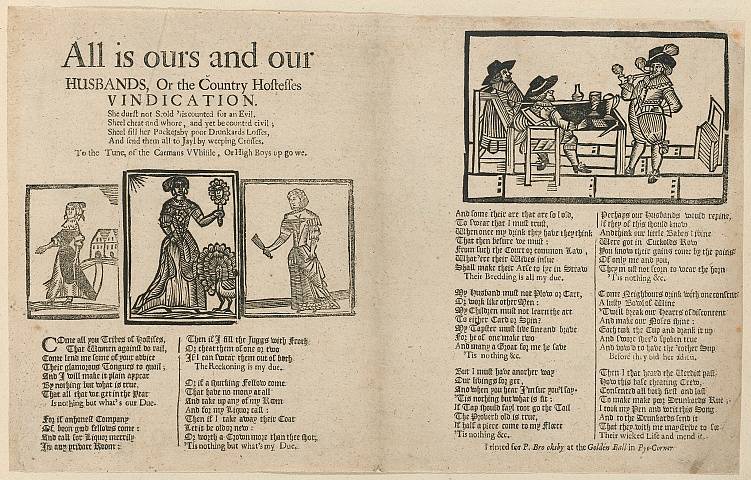 All is ours and our
HUSBANDS, Or the Country Hostesses
VINDICATION.
She durst not Scold 'tis counted for an Evil.
Sheel cheat and whore, and yet be counted civil;
Sheel fill her Pockets by poor Drunkards Losses,
And send them all to Jayl by weeping Crosses.
To the Tune, of the Carmans VVhistle, Or High Boys up go we.
COme all you Tribes of Hostises,
That Women against do rail,
Come lend me some of your advice
Their glamorous Tongues to quail;
And I will make it plain appear
By nothing but what is true,
That all that we get in the Year
Is nothing but what's our Due.
For if anhonest Company
Of boon good fellows come:
And call for Liquor merrily
In any private Room:
Then if I fill the Juggs with Froth
Or cheat them of one or two
If I can swear them out of both
The Reckoning is my due.
Or if a shirking Fellow come
That have no mony at all
And take up any of my Room
And for my Liquor call:
Then if I take away their Coat
Let it be old or new:
Or worth a Crown more than the shot,
'Tis nothing but what's my Due.
And some their are that are so old,
To swear that I must trust,
When once my drink they have they think
That then besure we must:
From such the Court or common Law,
What 'ere their Wives insue
Shall make their Arse to lye in Straw
Their Bredding is all my due.
My Husband must not Plow or Cart,
Or work like other Men:
My Children must not learn the art
To either Card or Spin?
My Tapster must live fine and brave
For he of one make two
And many a Groat for me he save
'Tis nothing &c.
But I must have another way
Our livings for get,
And when you hear I'm sur you'l say
'Tis nothing but what is fit:
If Tap should fayl root go the Tail
The Proverb old is true,
If half a piece come to my Fleece
'Tis nothing &c.
Perhaps our Husbands would repine,
If they of this should know
And think our little Babes divine
Were got in Cuckolds Row
You know their gains come by the pains
Of only me and you,
They must not scorn to wear the horn
'Tis nothing &c.
Come Neighbours drink with one consent
A lusty Bowl of Wine
'Twill break our Hearts of discontent
And make our Noses shine:
Each took the Cup and drank it up
And swore she'd spoken true
And vow'd to have the 'tother Sup
Before they bid her adieu.
Then I that heard the Verdict pass,
How this base cheating Crew,
Consented all both first and last
To make make poor Drunkards Rue;
I took my Pen and writ this Song
And to the Drunkards send it
That they with me may strive to
Their wicked Life and mend it.
Printed for P. Brooksby at the Golden Ball in Pye-Corner